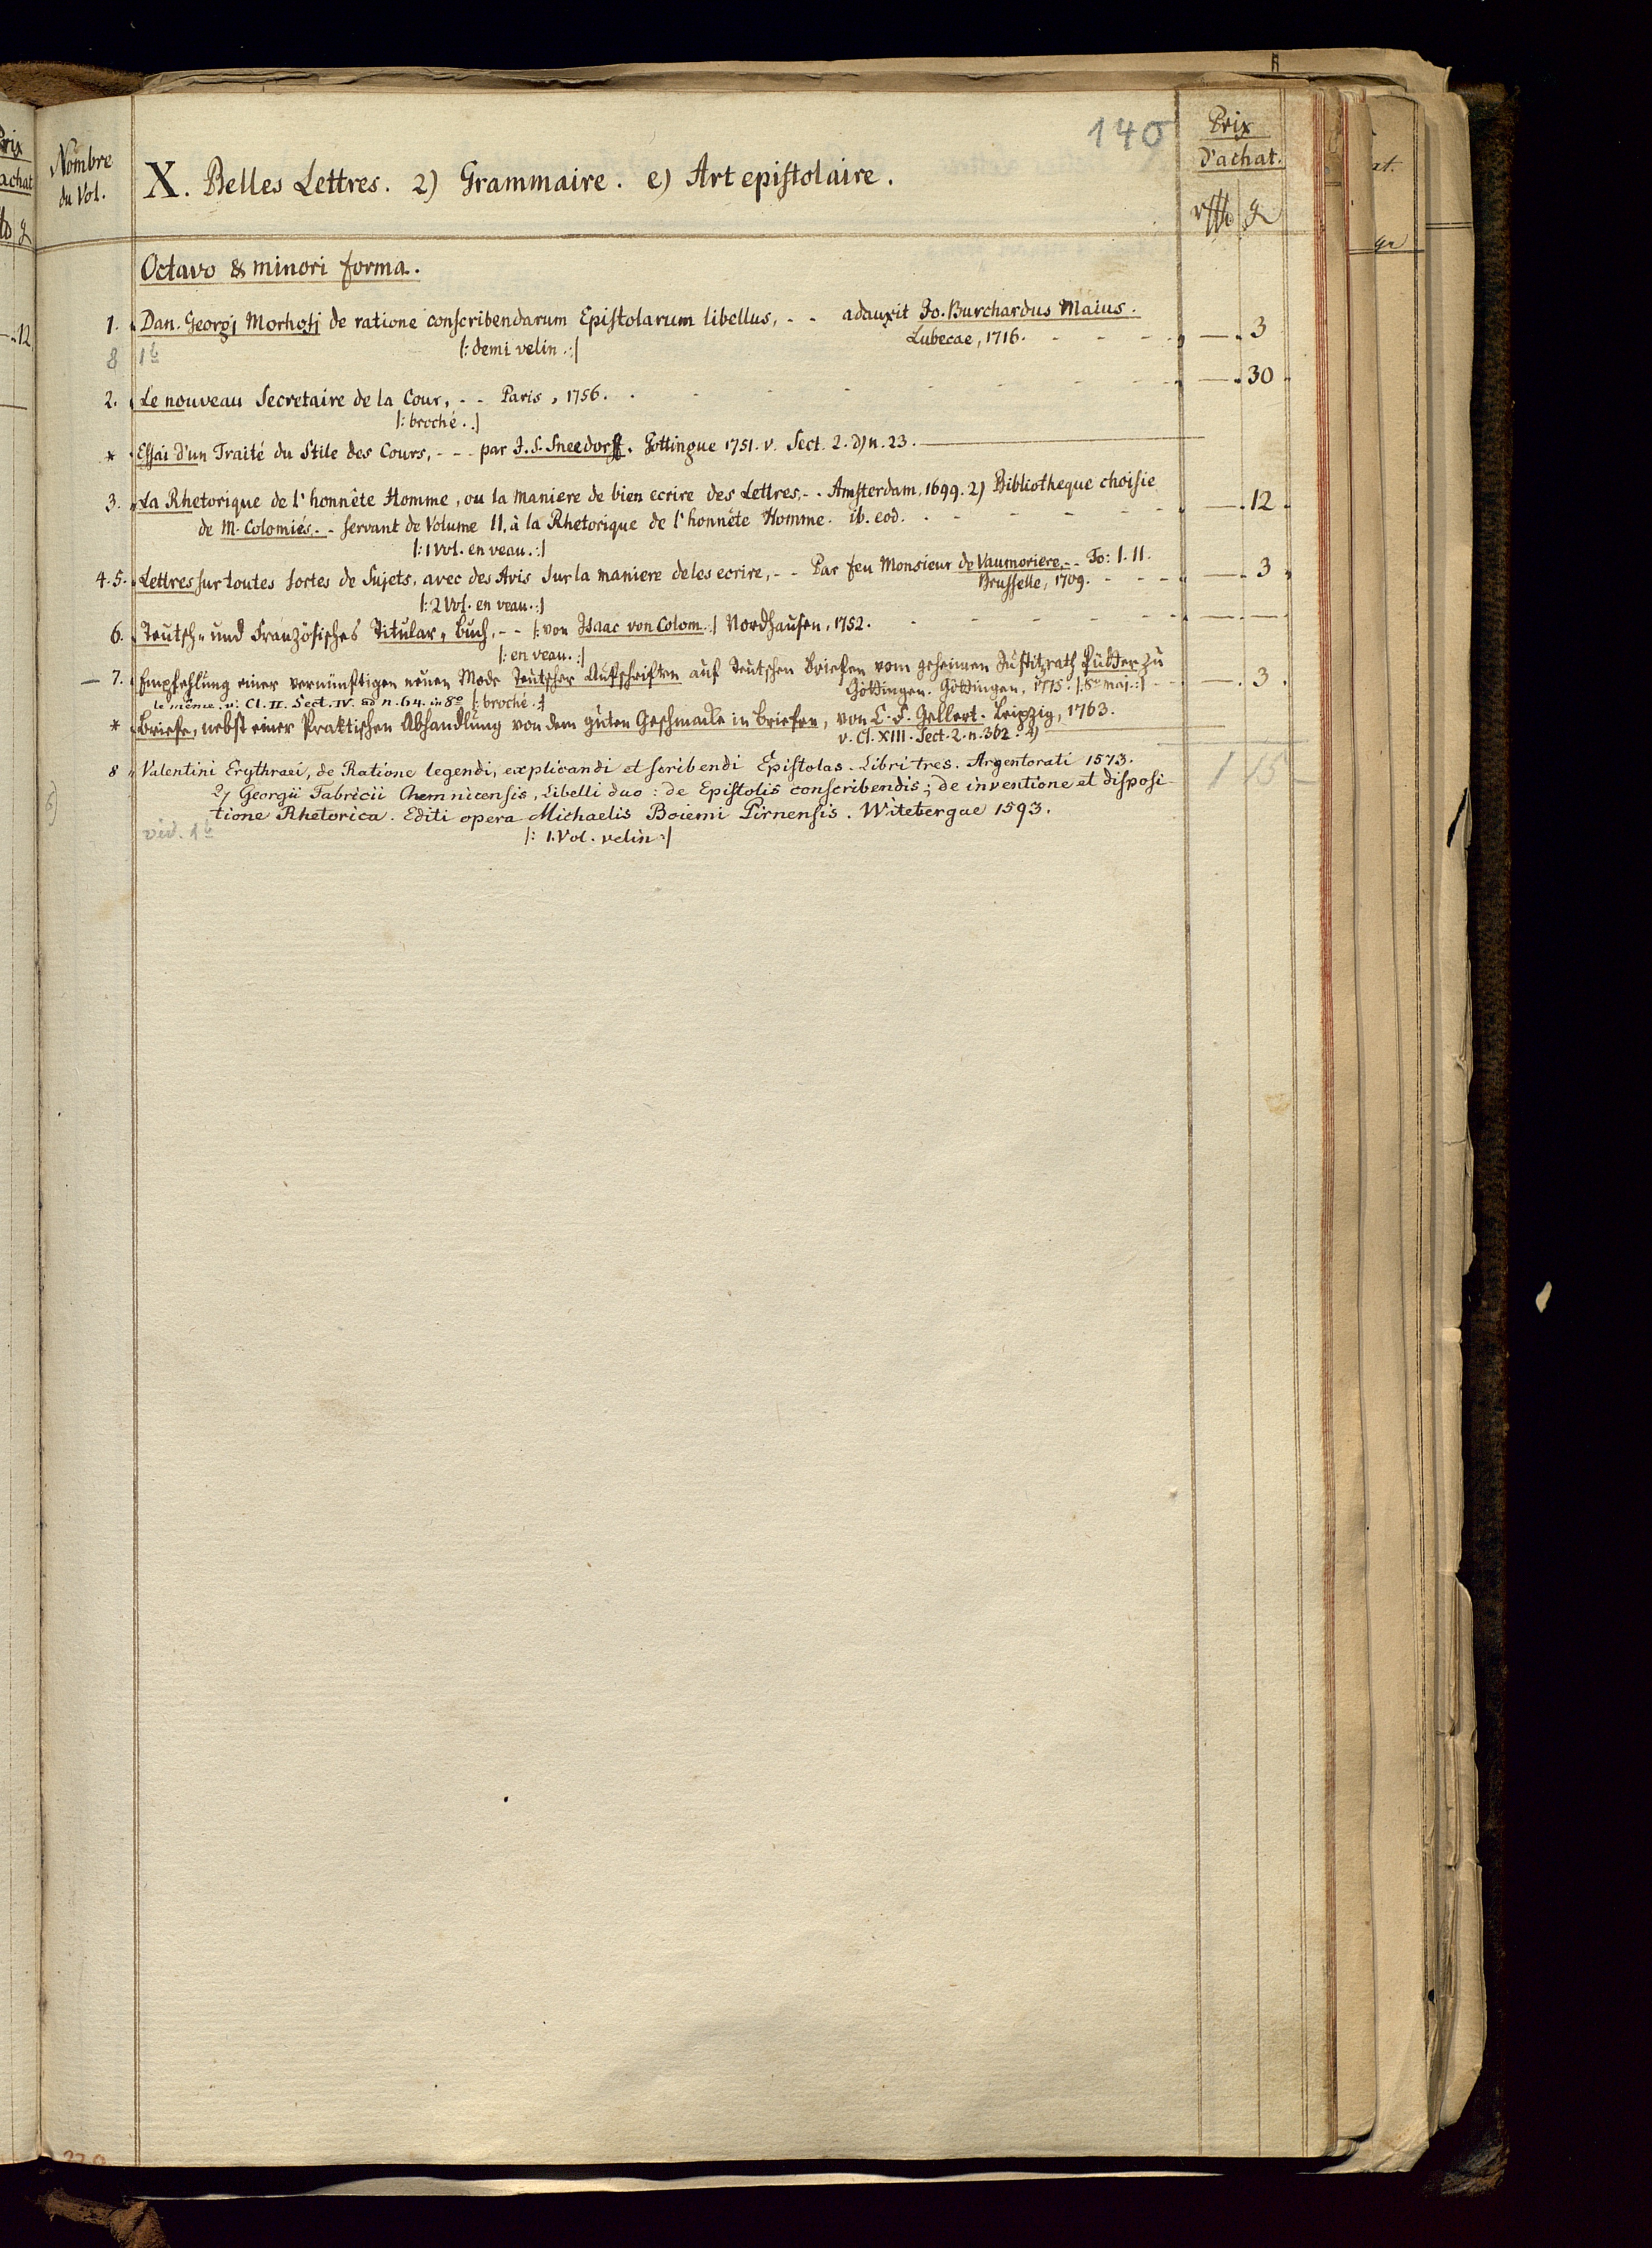 140
Nombre
du Vol.
X. Belles Lettres. 2) Grammaire. e) Art epistolaire.
Prix
d'achat.
rthl g
Octavo & minori forma.
1. Dan. Georgj Morhofj de ratione conscribendarum Epistolarum libellus, - - adauxit Jo. Burchardus Maius.
Lubecae, 1716. - - - - — . 3
8 1b |: demi velin :|
2. Le nouveau Secretaire de la Cour, - - Paris, 1756. - - - - — . 30
|: broché. :|
* Essai d'un Traité du Stile des Cours, - - - par J. S. Sneedorff. Gottingue 1751. v. Sect. 2. d) n. 23.
3. La Rhetorique de l'honnête Homme, ou la maniere de bien ecrire des Lettres, - - Amsterdam, 1699. 2) Bibliotheque choisie
de M. Colomiés, - - servant de Volume II. à la Rhetorique de l'honnête Homme. ib. eod. - - - - — . 12
|: 1 Vol. en veau. :|
4. 5. Lettres sur toutes sortes de Sujets, avec des Avis sur la maniere de les ecrire, - - Par feu Monsieur de Vaumoriere, - - To: I. II.
Brusselle, 1709. - - - — . 3
|: 2 Vol. en veau. :|
6. Teutsch- und Französisches Titular-Buch, - - |: von Isaac von Colom. :| Nordhausen, 1752. - - - - — . —
|: en veau. :|
— 7. Empfehlung einer vernünftigen neuen Mode Teutscher Aufschriften auf Teutschen Briefen vom geheimen Justitzrath Pütter zu
Göttingen. Göttingen, 1775. |: 8vo maj. :| - - — . 3
le même. v. Cl. II. Sect. IV. ad n. 64. in 8vo |: broché. :|
* Briefe, nebst einer Praktischen Abhandlung von dem guten Geschmacke in Briefen, von C. F. Gellert. Leipzig, 1763.
v. Cl. XIII. Sect. 2. n. 362. 2)
8 Valentini Erythraei, de Ratione legendi, explicandi et scribendi Epistolas. Libri tres. Argentorati 1573.
2) Georgii Fabricii Chemnicensis, Libelli duo: de Epistolis conscribendis; de inventione et disposi-
tione Rhetorica. Editi opera Michaelis Boiemi Pirnensis. Witebergae 1593.
|: 1. Vol. velin :|
vid. 1b
1 15